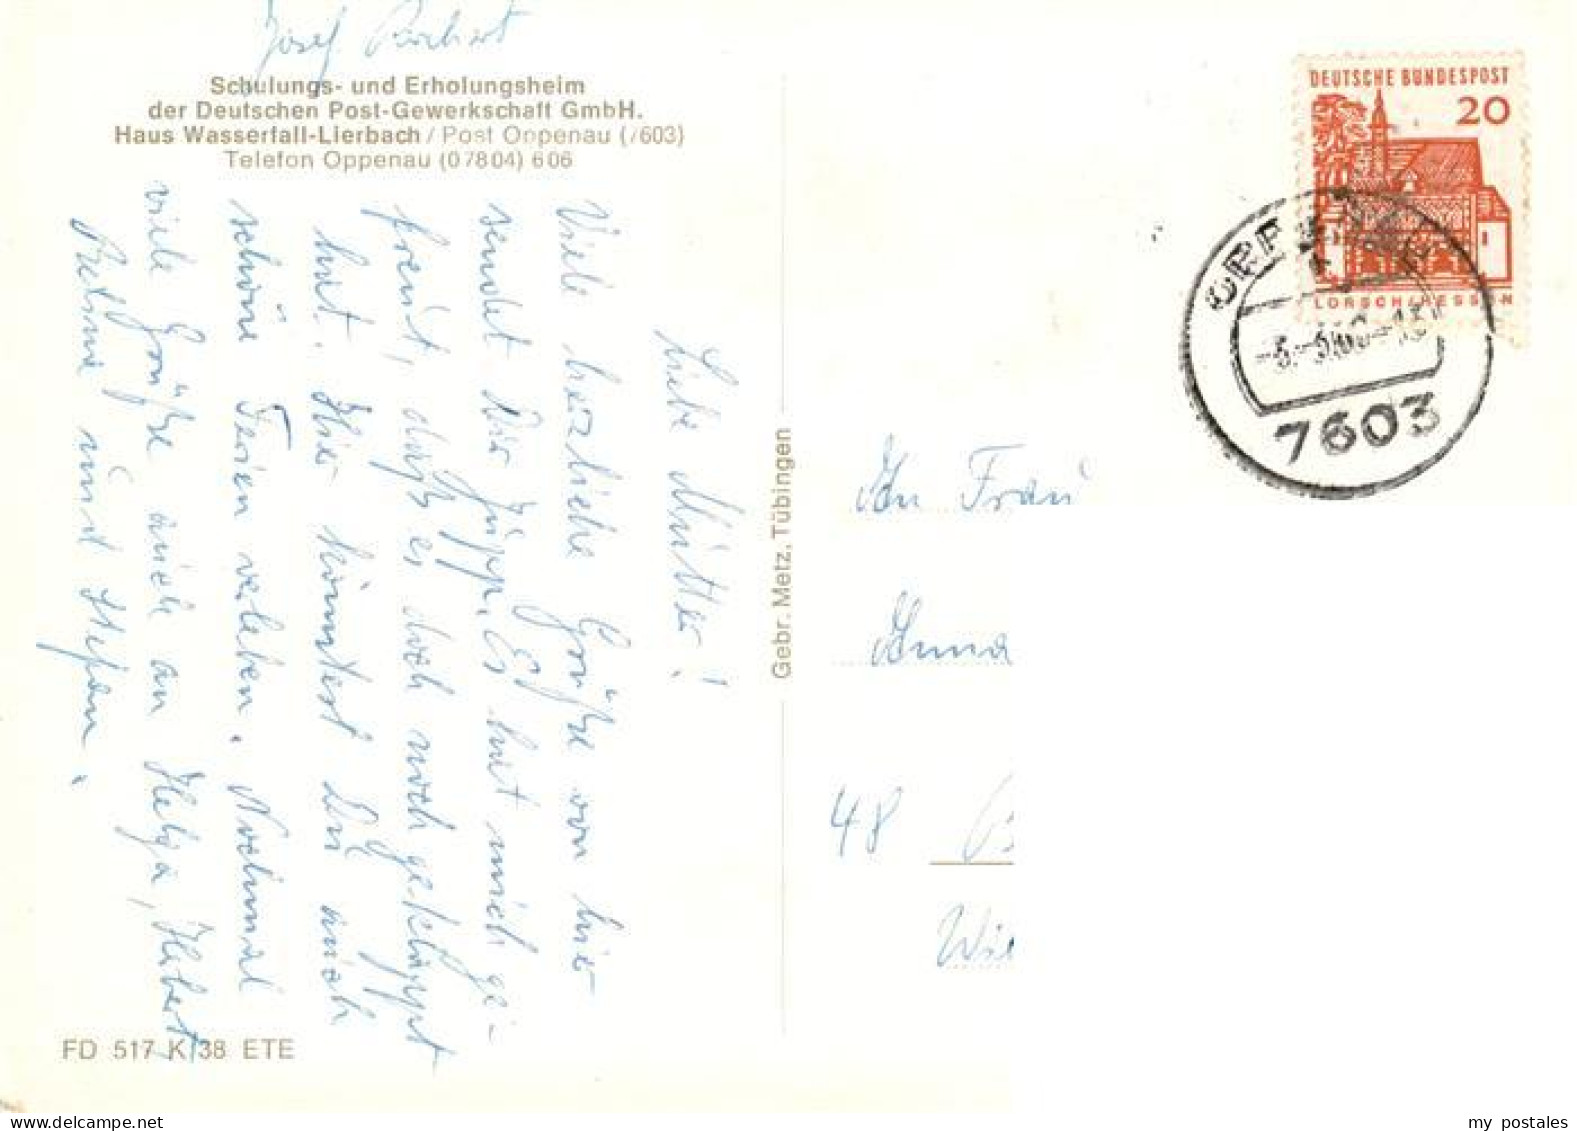 Josef
Schulungs- und Erholungsheim
der Deutschen Post-Gewerkschaft GmbH.
Haus Wasserfall-Lierbach / Post Oppenau (7603)
Telefon Oppenau (07804) 606
Liebe Mutter!
Viele herzliche Grüße von hier
sendet Dir Jupp. Es hat mich ge-
freut, daß es doch noch geklappt
hat. Hier könntest Du auch
schöne Ferien verleben. Nochmal
viele Grüße auch an Helga, Hubert,
und Stefan.
FD 517 K/38 ETE
Gebr. Metz, Tübingen
DEUTSCHE BUNDESPOST
20
LORSCH/HESSEN
7603
An Frau
Anna
48
my postales